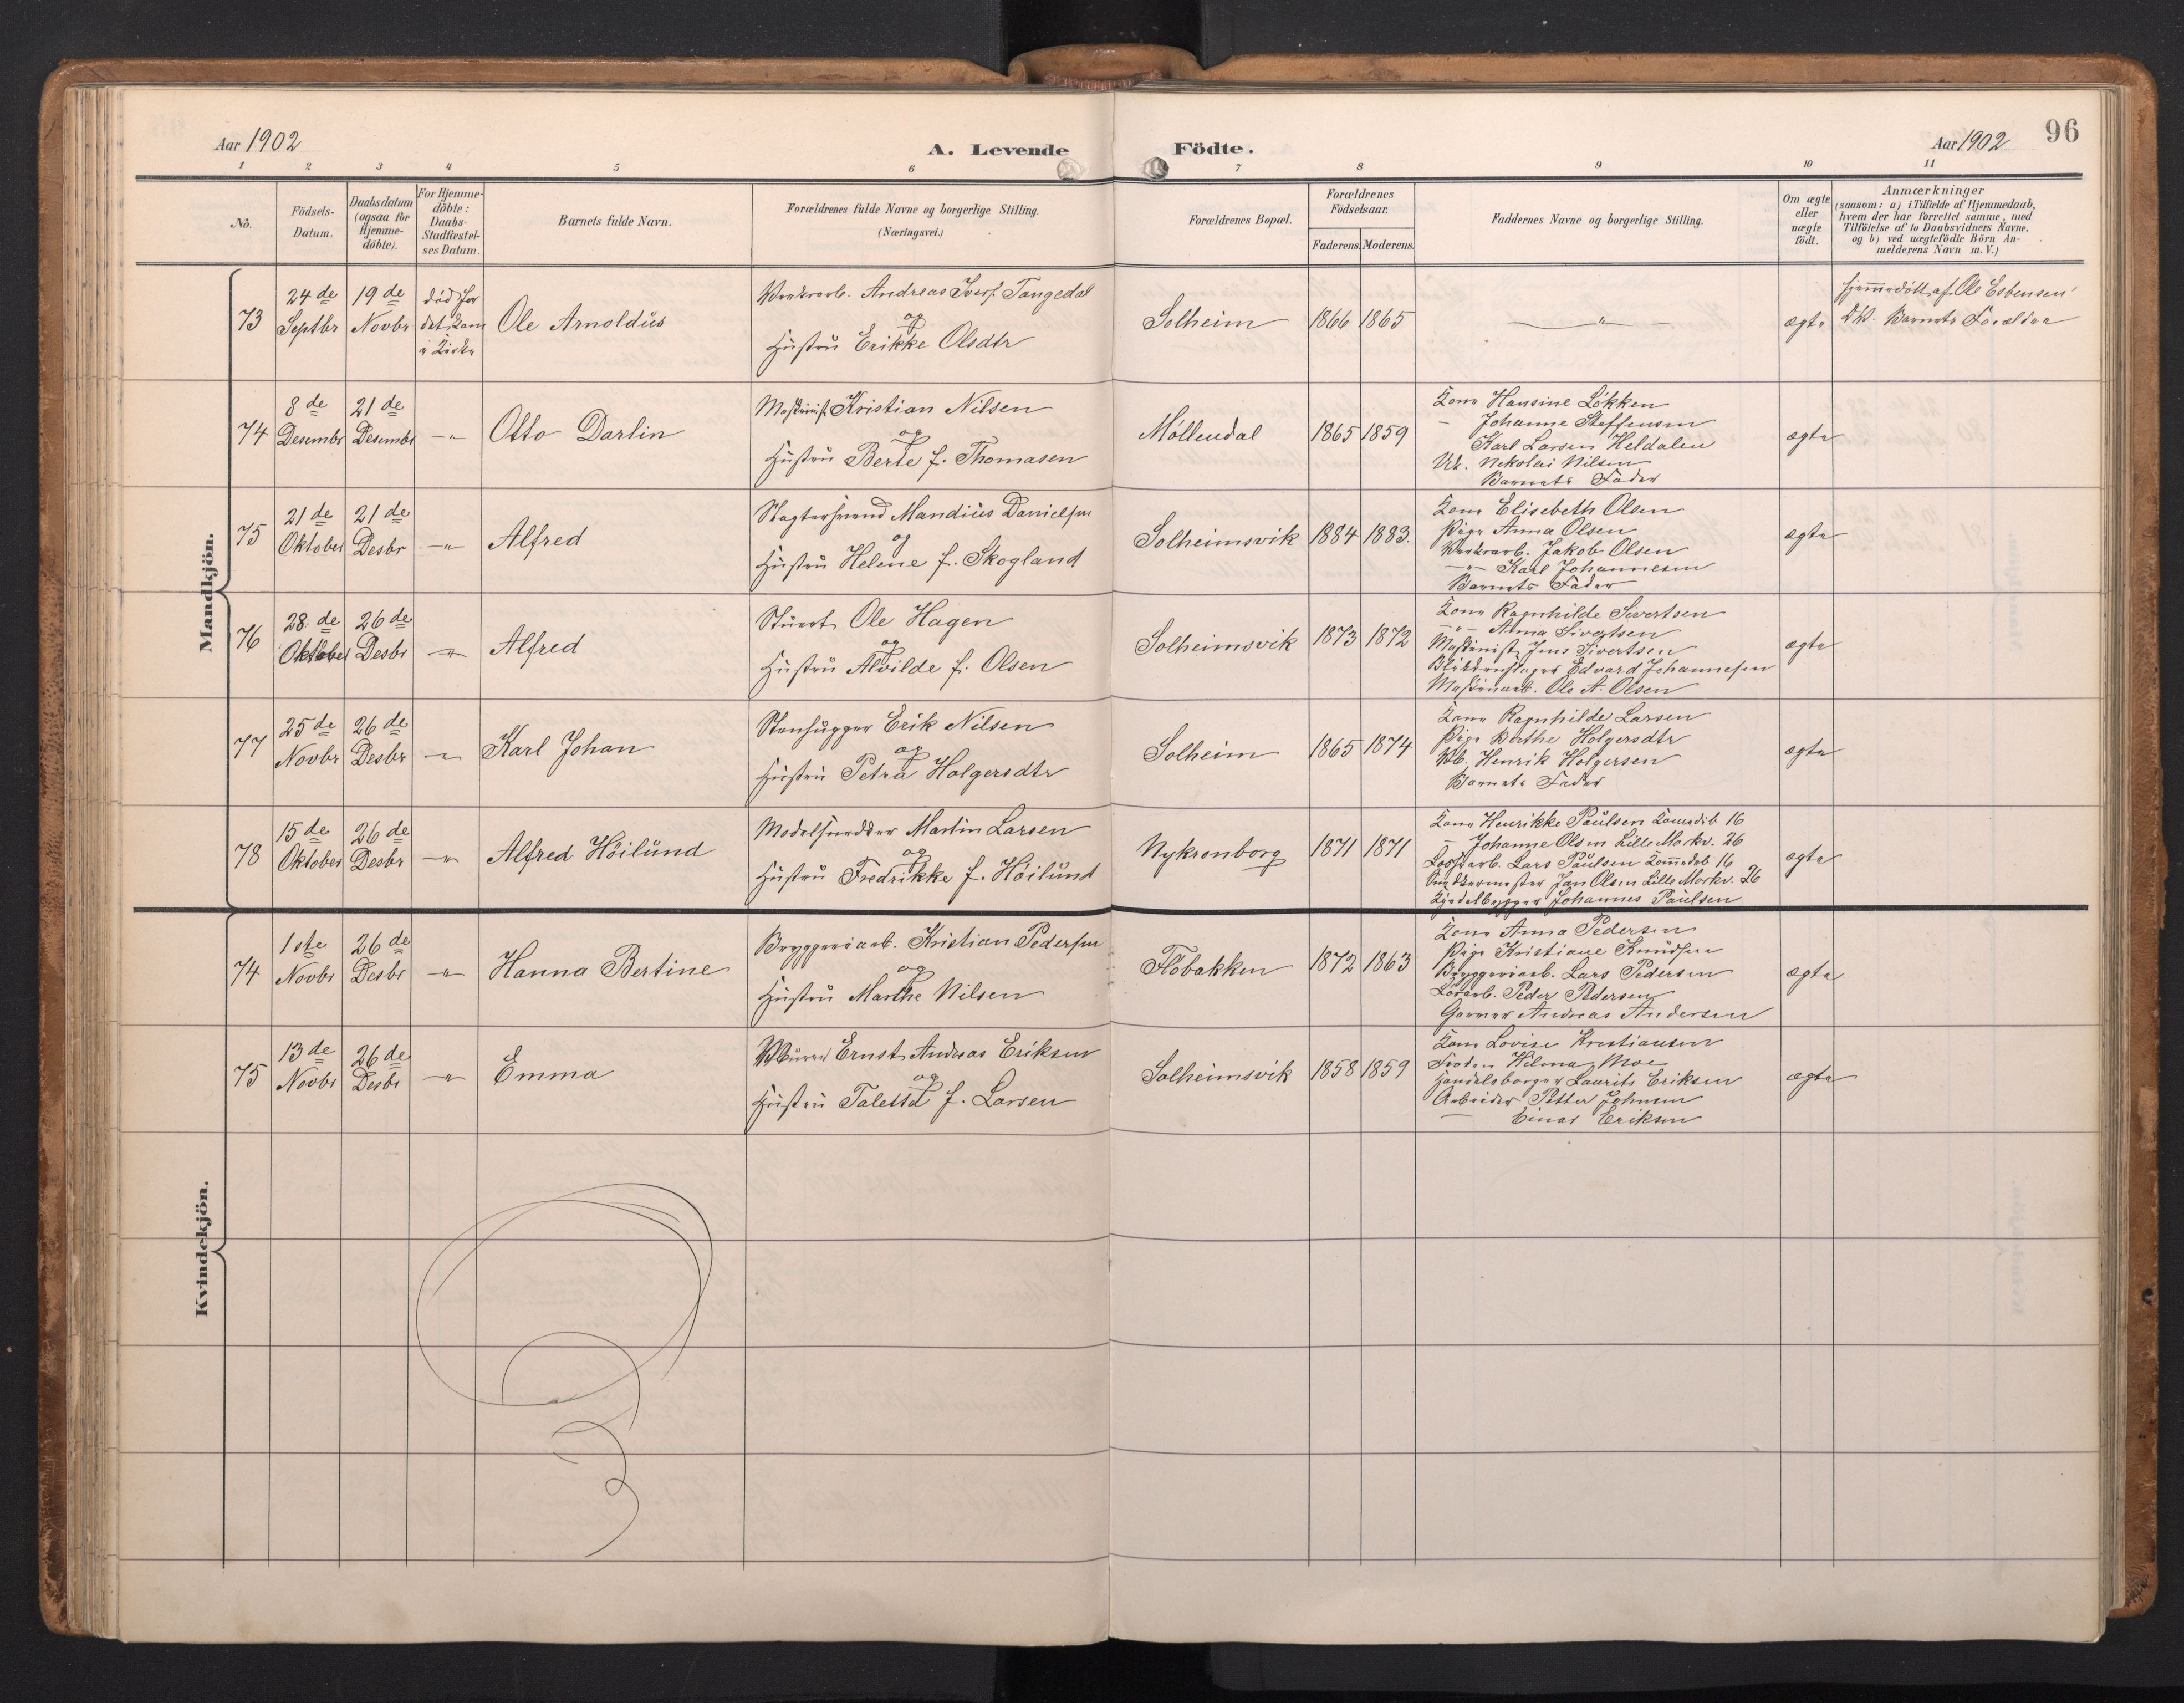 Aar 1902
A. Levende Födte.
Aar 1902
96
1 2 3 4 5 6 7 8 9 10 11
No.
Födsels-
Datum.
Daabsdatum
(ogsaa for
Hjemme-
döbte).
For Hjemme-
döbte:
Daabs-
Stadfæstel-
ses Datum.
Barnets fulde Navn.
Forældrenes fulde Navne og borgerlige Stilling.
(Næringsvei.)
Forældrenes Bopæl.
Forældrenes
Födselsaar.
Faderens. Moderens.
Faddernes Navne og borgerlige Stilling.
Om ægte
eller
uægte
födt.
Anmærkninger
(saasom: a) i Tilfælde af Hjemmedaab,
hvem der har forrettet samme, med
Tilföielse af to Daabsvidners Navne,
og b) ved uægtefödte Börn An-
melderens Navn m. V.)
Mandkjön.
73
24 de
Septbr
19 de
Novbr
död før
det kom
i Kirke
Ole Arnoldus
Andreas Iversf. Tangedal
og
Hustru Erikke Olsdtr
Solheim
1866 1865
— " —
ægte
Hjemmedöbt af Ole Esbensen
Barnets Forældre
74
8 de
Desembr
21 de
Desembr
— " —
Otto Darlin
Maskinist Kristian Nilsen
og
Hustru Berte f. Thomasen
Möllendal
1865 1859
Kone Hansine Lökken
— Johanne Steffensen
Karl Larsen Heldalen
Nikolai Nilsen
Barnets Fader
ægte
75
21 de
Oktober
21 de
Desbr
— " —
Alfred
Slagtersvend Mandius Danielsen
og
Hustru Helene f. Skogland
Solheimsvik
1884 1883.
Kone Elisebeth Olsen
Pige Anna Olsen
Jakob Olsen
— " — Karl Johannesen
Barnets Fader
ægte
76
28. de
Oktober
26 de
Desbr
— " —
Alfred
Stuert Ole Hagen
og
Hustru Alvilde f. Olsen
Solheimsvik
1873 1872
Kone Ragnhilde Sivertsen
— " — Anna Sivertsen
Maskinist Jens Sivertsen
Edvard Johannesen
Maskinarb. Ole A. Olsen
ægte
77
25 de
Novbr
26 de
Desbr
— " —
Karl Johan
Stenhugger Erik Nilsen
og
Hustru Petra Holgersdtr
Solheim
1865 1874
Kone Ragnhilde Larsen
Pige Berthe Holgersdtr
Henrik Holgersen
Barnets Fader
ægte
78
15 de
Oktober
26 de
Desbr
— " —
Alfred Höilund
Modelsnedker Martin Larsen
og
Hustru Fredrikke f. Höilund
Nykronborg
1871 1871
Kone Henrikke Paulsen 16
— Johanne Olsen Lille Markv. 26
Lars Paulsen 16
Jan Olsen Lille Markv. 26
Johannes Paulsen
ægte
Kvindekjön.
74
1 ste
Novbr
26 de
Desbr
— " —
Hanna Bertine
Bryggeriarb. Kristian Pedersen
og
Hustru Marthe Nilsen
Flöbakken
1872 1863
Kone Anna Pedersen
Pige Kristiane Knudsen
Bryggeriarb. Lars Pedersen
Peder Pedersen
Garver Andreas Andersen
ægte
75
13 de
Novbr
26 de
Desbr
— " —
Emma
Murer Ernst Andreas Eriksen
og
Hustru Taletta f. Larsen
Solheimsvik
1858 1859
Kone Lovise Kristiansen
Frøken Hilma Moe
Handelsborger Laurits Eriksen
Arbeider Petter Johnsen
— Einar Eriksen
ægte